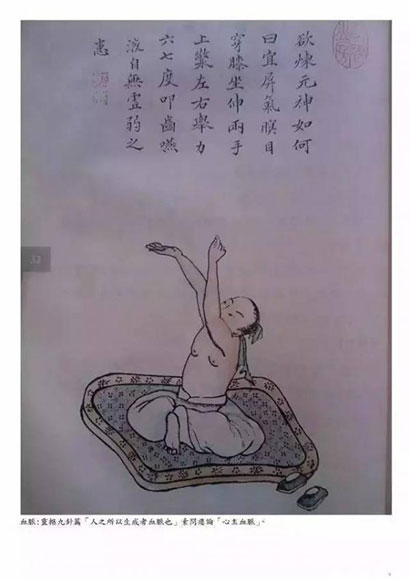 欲煉元神如何
曰宜屏氣瞑目
穿膝坐伸兩手
上左右舉力
六七度叩齒嚥
液自無虛弱之
患
血脈：靈樞九針篇「人之所以生成者血脈也」素問痿論「心主血脈」。